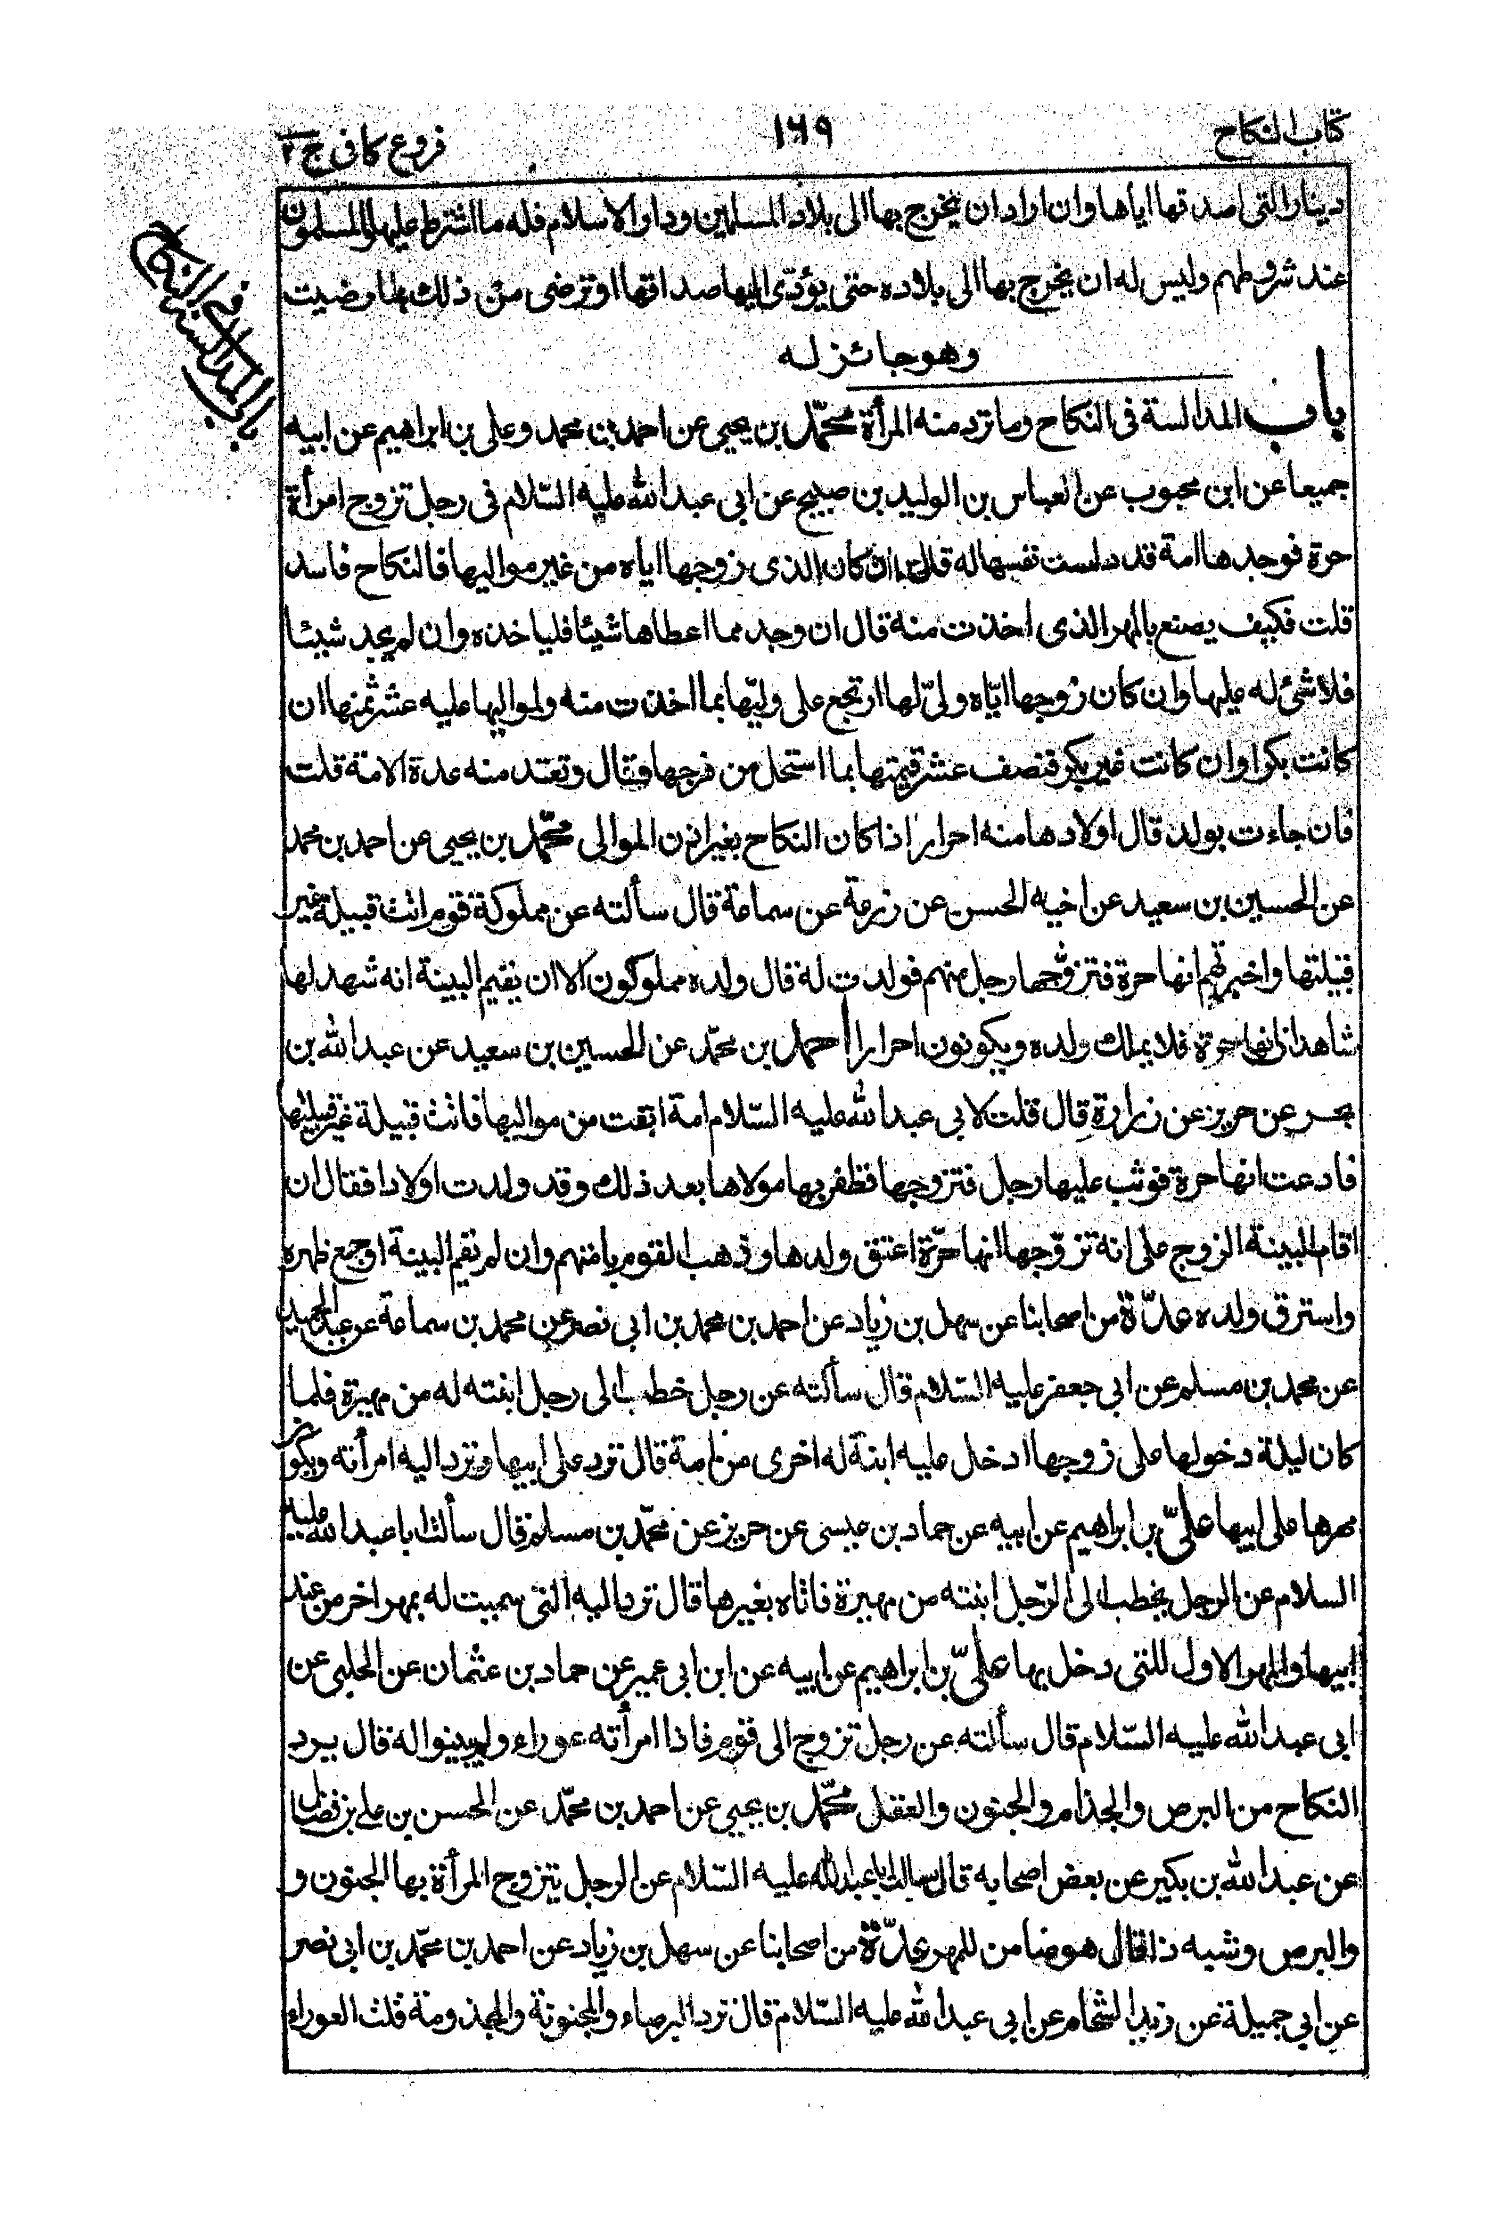 كتاب النكاح
١٦٩
فروع كافى ج ٢
باب المدالسة فى النكاح
دينار التى اصدقها اياها وان اراد ان يخرج بها الى بلاد المسلمين ودار الاسلام فله ما اشترط عليها والمسلمون
عند شروطهم وليس له ان يخرج بها الى بلاده حتى يؤدّى اليها صداقها او ترضى من ذلك بما رضيت
وهو جائز له
باب المدالسة فى النكاح وما ترد منه المرأة محمّد بن يحيى عن احمد بن محمد وعلى بن ابراهيم عن ابيه
جميعا عن ابن محبوب عن العباس بن الوليد بن صبيح عن ابى عبد الله عليه السّلام فى رجل تزوج امرأة
حرة فوجدها امة قد دلست نفسها له قال ان كان الذى زوجها اياه من غير مواليها فالنكاح فاسد
قلت فكيف يصنع بالمهر الذى اخذت منه قال ان وجد مما اعطاها شيئا فلياخذه وان لم يجد شيئا
فلا شئ له عليها وان كان زوجها ايّاه ولىّ لها ارتجع على وليّها بما اخذت منه ولمواليها عليه عشر ثمنها ان
كانت بكرا وان كانت غير بكر فنصف عشر قيمتها بما استحل من فرجها وقال وتعتد منه عدة الامة قلت
فان جاءت بولد قال اولادها منه احرار اذا كان النكاح بغير اذن الموالى محمّد بن يحيى عن احمد بن محمد
عن الحسين بن سعيد عن اخيه الحسن عن زرعة عن سماعة قال سألته عن مملوكة قوم اتت قبيلة غير
قبيلتها واخبرتهم انها حرة فتزوّجها رجل منهم فولدت له قال ولده مملوكون الا ان يقيم البينة انه شهد لها
شاهدان انها حرة فلا يملك ولده ويكونون احرارا احمد بن محمّد عن الحسين بن سعيد عن عبد الله بن
بحر عن حريز عن زرارة قال قلت لابى عبد الله عليه السّلام امة ابقت من مواليها فاتت قبيلة غير قبيلتها
فادعت انها حرة فوثب عليها رجل فتزوجها فظفر بها مولاها بعد ذلك وقد ولدت اولادا فقال ان
اقام البينة الزوج على انه تزوّجها انها حرّة اعتق ولدها وذهب القوم بامتهم وان لم تقم البينة اوجع ظهره
واسترق ولده عدّة من اصحابنا عن سهل بن زياد عن احمد بن محمد بن ابى نصر عن محمد بن سماعة عن عبد الحميد
عن محمد بن مسلم عن ابى جعفر عليه السّلام قال سألته عن رجل خطب الى رجل ابنته له من مهيرة فلما
كان ليلة دخولها على زوجها ادخل عليه ابنة له اخرى من امة قال ترد على ابيها وترد اليه امرأته ويكون
مهرها على ابيها علىّ بن ابراهيم عن ابيه عن حماد بن عيسى عن حريز عن محمّد بن مسلم قال سألت ابا عبد الله عليه
السلام عن الرجل يخطب الى الرّجل ابنته من مهيرة فاتاه بغيرها قال ترد اليه التى سميت له بمهر اخر من عند
ابيها والمهر الاول للتى دخل بها علىّ بن ابراهيم عن ابيه عن ابن ابى عمير عن حماد بن عثمان عن الحلبى عن
ابى عبد الله عليه السّلام قال سألته عن رجل تزوج الى قوم فاذا امرأته عوراء ولم يبينوا له قال يرد
النكاح من البرص والجذام والجنون والعفل محمّد بن يحيى عن احمد بن محمّد عن الحسن بن على بن فضال
عن عبد الله بن بكير عن بعض اصحابه قال سالت ابا عبد الله عليه السّلام عن الرجل يتزوج المرأة بها الجنون و
والبرص وشبه ذا قال هو ضامن للمهر عدّة من اصحابنا عن سهل بن زياد عن احمد بن محمّد بن ابى نصر
عن ابى جميلة عن زيد الشحّام عن ابى عبد الله عليه السّلام قال ترد البرصاء والمجنونة والمجذومة قلت العوراء